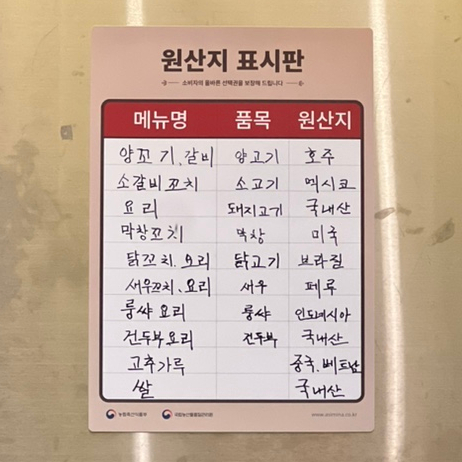 원산지 표시판
소비자의 올바른 선택권을 보장해 드립니다
메뉴명 품목 원산지
양꼬기、갈비 양고기 호주
소갈비꼬치 소고기 멕시코
요리 돼지고기 국내산
막창꼬치 막창 미국
닭꼬치、요리 닭고기 브라질
새우꼬치、요리 새우 페루
륭샤 요리 륭샤 인도메시아
건두부요리 건두부 국내산
고추가루 중국、베트남
쌀 국내산
농림축산식품부 국립농산물품질관리원